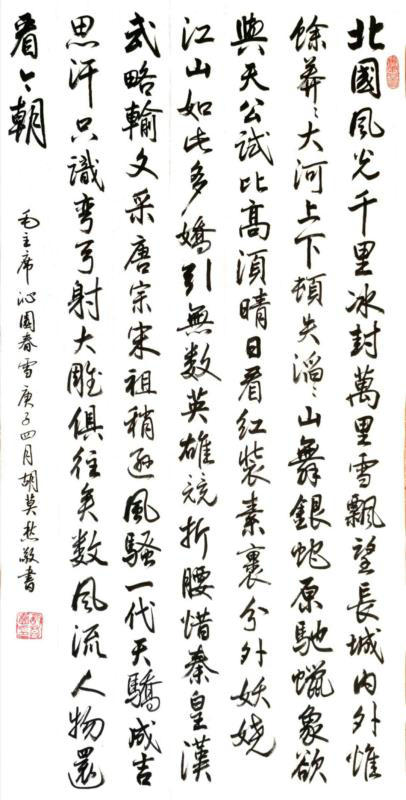 北國風光千里冰封萬里雪飄望長城内外惟
餘莽〻大河上下頓失滔〻山舞銀蛇原馳蠟象欲
與天公試比高須晴日看紅裝素裹分外妖嬈
江山如此多嬌引無数英雄競折腰惜秦皇漢
武略輸文采唐宗宋祖稍遜風騷一代天驕成吉
思汗只識彎弓射大雕俱往矣数風流人物還
看今朝
毛主席沁園春雪庚子四月胡莫愁敬書